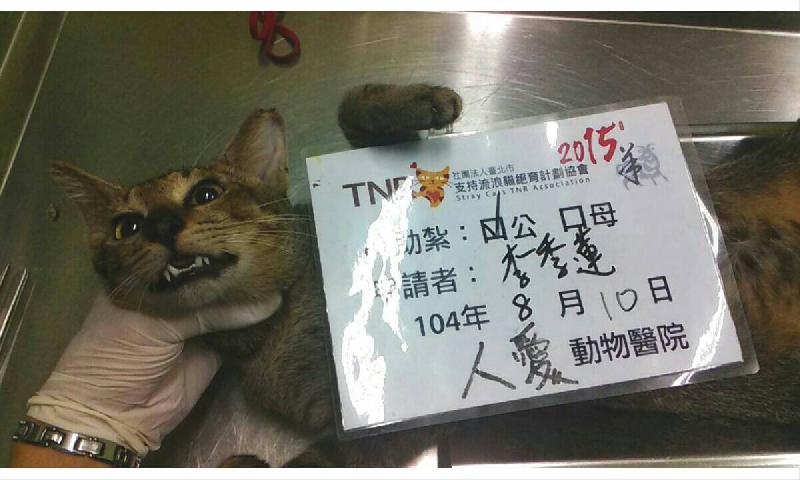 2015'
TNR 社團法人臺北市
支持流浪貓絕育計劃協會
Stray Cats TNR Association
助紮：☑公 口母
請者：李季蓮
104年 8 月 10 日
人愛 動物醫院